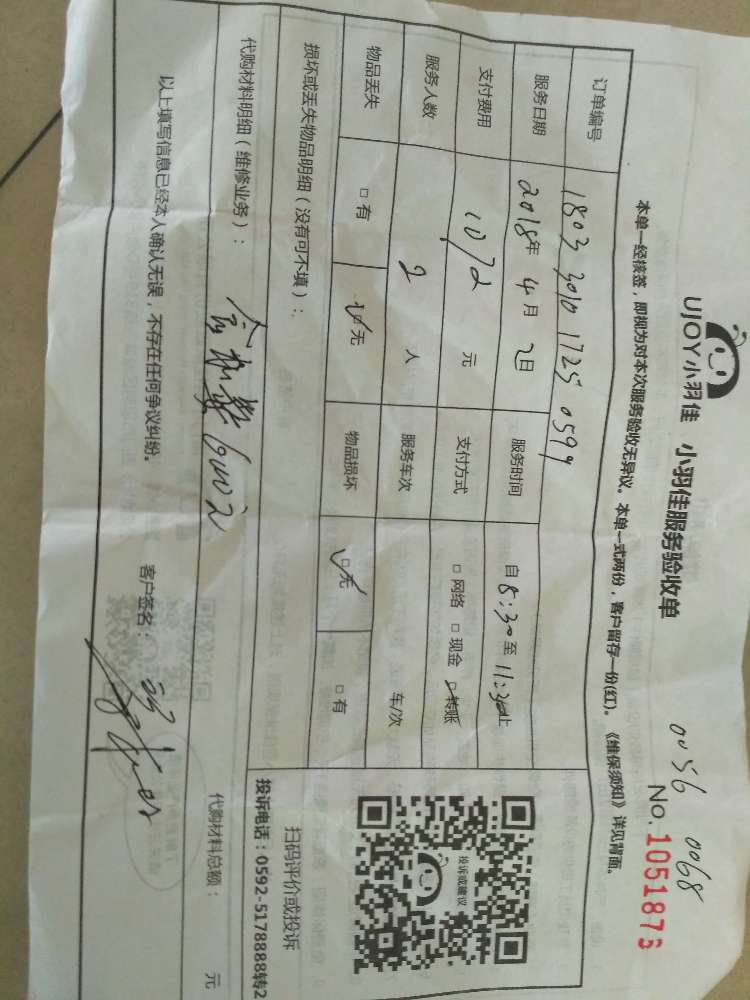 0056 0068
UJOY小羽佳 小羽佳服务验收单
No. 1051873
本单一经接签，即视为对本次服务验收无异议。本单一式两份，客户留存一份(红)。《维保须知》详见背面。
订单编号 1803 3010 1725 0599
服务日期 2018年 4月 2日 服务时间 自 8:30 至 11:30 止
支付费用 1072 元 支付方式 □ 网络 □ 现金 □ 转账
服务人数 2 人 服务车次 车/次
物品丢失 □ 有 □ 无 物品损坏 □ 无 □ 有
投诉或建议
损坏或丢失物品明细（没有可不填）：
扫码评价或投诉
投诉电话：0592-5178888转2
代购材料明细（维修业务）：
代购材料总额： 元
以上填写信息已经本人确认无误，不存在任何争议纠纷。 客户签名：